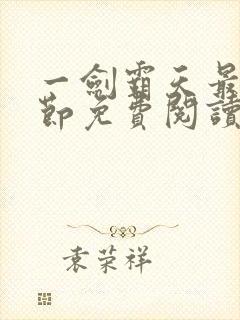 一劍霸天最
節免費閱讀
袁荣祥